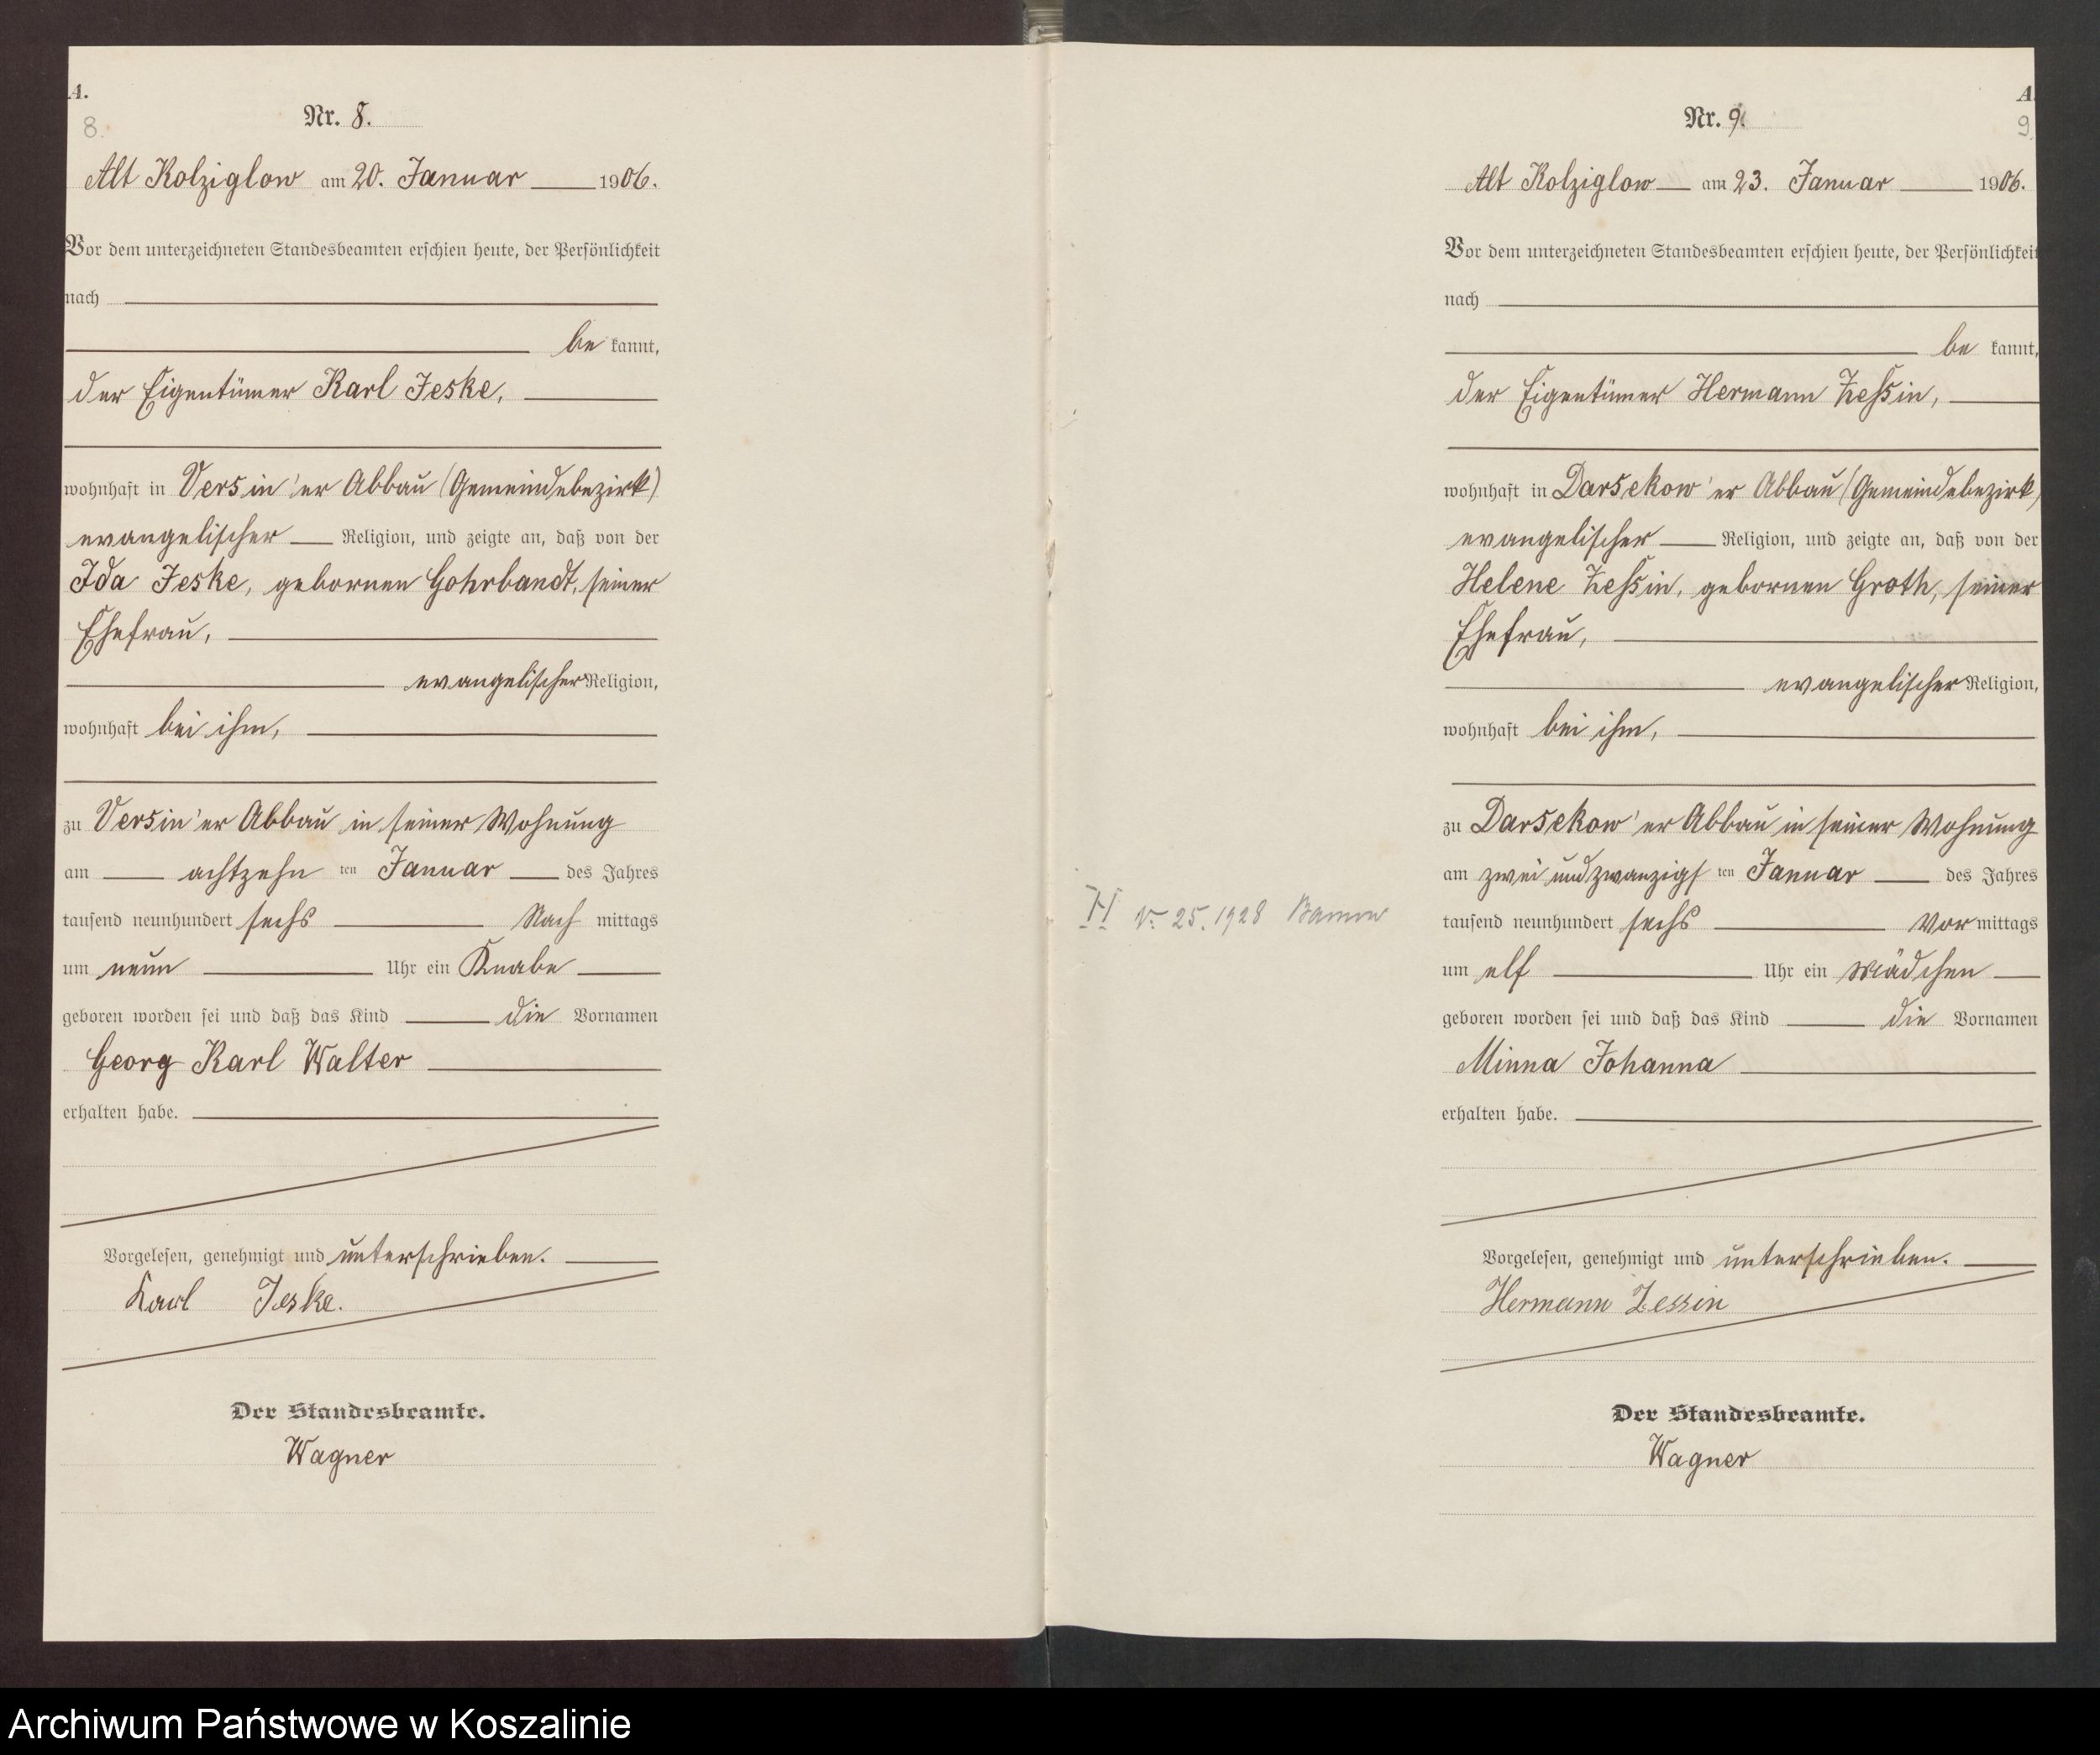 A.
8.
Nr. 8.
Alt Kolziglow am 20. Januar 1906.
Vor dem unterzeichneten Standesbeamten erschien heute, der Persönlichkeit
nach
be kannt,
der Eigentümer Karl Jeske,
wohnhaft in Versin'er Abbau (Gemeindebezirk)
evangelischer Religion, und zeigte an, daß von der
Ida Jeske, gebornen Gohrbandt, seiner
Ehefrau,
evangelischer Religion,
wohnhaft bei ihm,
zu Versin'er Abbau in seiner Wohnung
am achtzehn ten Januar des Jahres
tausend neunhundert sechs Nach mittags
um neun Uhr ein Knabe
geboren worden sei und daß das Kind die Vornamen
Georg Karl Walter
erhalten habe.
Vorgelesen, genehmigt und unterschrieben.
Karl Jeske.
Der Standesbeamte.
Wagner
A
9
Nr. 9.
Alt Kolziglow am 23. Januar 1906.
Vor dem unterzeichneten Standesbeamten erschien heute, der Persönlichkeit
nach
be kannt,
der Eigentümer Hermann Zessin,
wohnhaft in Darsekow'er Abbau (Gemeindebezirk)
evangelischer Religion, und zeigte an, daß von der
Helene Zessin, gebornen Groth, seiner
Ehefrau,
evangelischer Religion,
wohnhaft bei ihm,
zu Darsekow'er Abbau in seiner Wohnung
am zwei und zwanzigs ten Januar des Jahres
H 25. 1928
tausend neunhundert sechs Vor mittags
um elf Uhr ein Mädchen
geboren worden sei und daß das Kind die Vornamen
Minna Johanna
erhalten habe.
Vorgelesen, genehmigt und unterschrieben.
Hermann Zessin
Der Standesbeamte.
Wagner
Archiwum Państwowe w Koszalinie